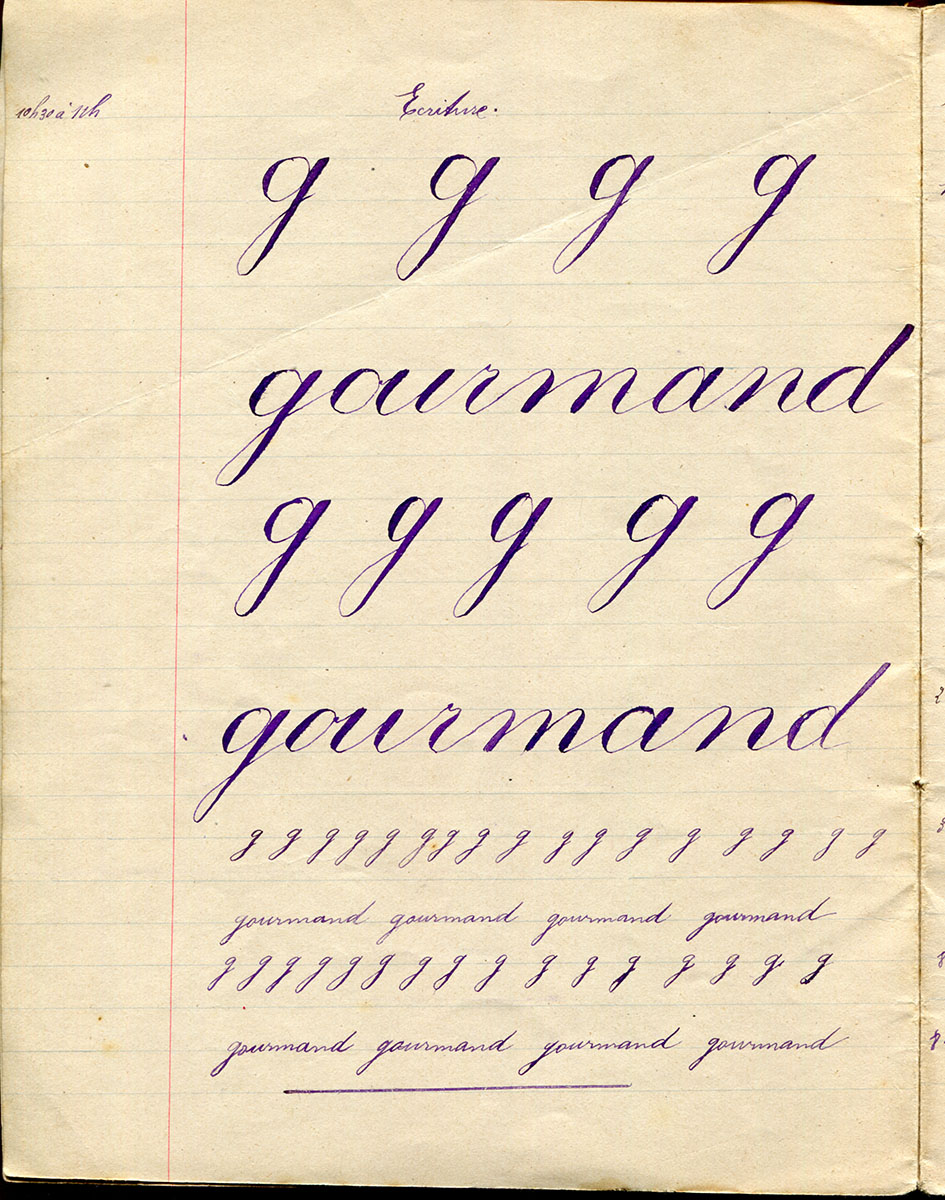 10h30 à 11h
Ecriture.
g g g g
gourmand
g g g g g
gourmand
g g g g g g g g g g g g g g g g g
gourmand gourmand gourmand gourmand
g g g g g g g g g g g g g g g g g
gourmand gourmand gourmand gourmand